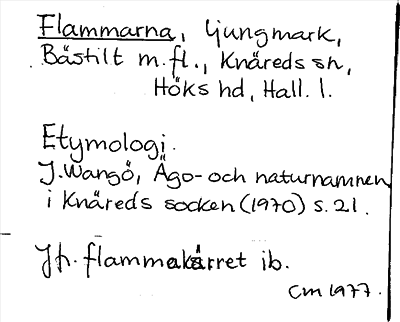 Flammarna, ljungmark,
Båstilt m.fl., Knäreds sn,
Höks hd, Hall. l.
Etymologi.
J. Wangö, Ägo- och naturnamnen
i Knäreds socken (1970) s. 21.
Jfr. flammakärret ib.
CM 1977.